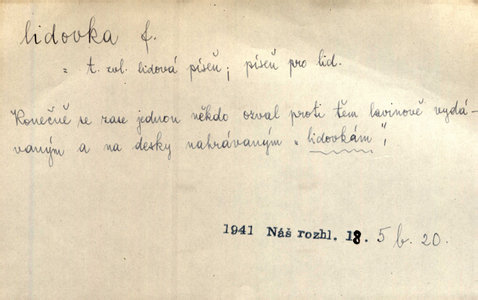 lidovka f.
= t. zvl. lidová píseň; píseň pro lid.
Konečně se zase jednou někdo ozval proti těm lavinově vydá-
vaným a na desky nahrávaným „lidovkám“,
1941 Náš rozhl. 18. 5 b. 20.